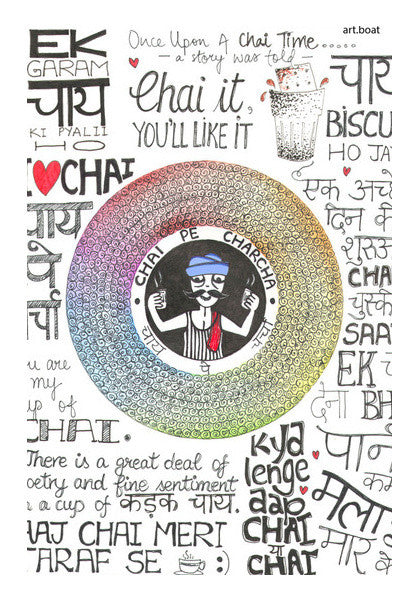 art.boat
EK
GARAM
चाय
KI PYALII
HO
Once Upon A Chai Time.....
— a story was told —
Chai it,
YOU'LL LIKE IT
चाय
BISCU
HO JA
I ♥ CHAI
चाय
पे
र्चा
एक अच्छ
दिन की
शुरुअ
CHA
चुस्के
SAA
EK च
देना BH
CHAI PE CHARCHA
चाय पे चर्चा
u are
my
up of
CHAI.
There is a great deal of
oetry and fine sentiment
a cup of कड़क चाय.
AAJ CHAI MERI
TARAF SE :)
Kya
lenge
aap
CHAI
या
CHAI
पान
कम
मला
मार के